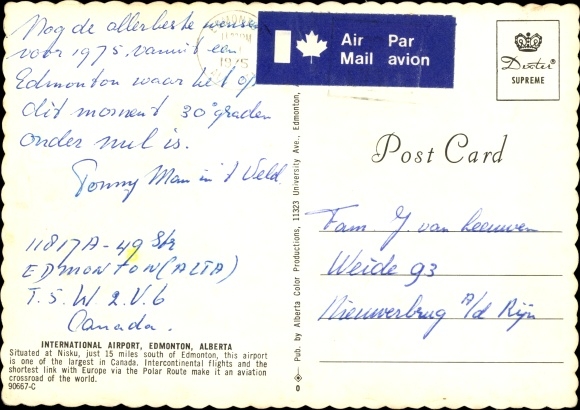 Nog de allerbeste wensen
voor 1975, vanuit een
Edmonton waar het op
dit moment 30° graden
onder nul is.
Tonny Man in 't Veld.
11817A - 49 Str
EDMONTON (ALTA)
T.5.W 2.V.6
Canada.
INTERNATIONAL AIRPORT, EDMONTON, ALBERTA
Situated at Nisku, just 15 miles south of Edmonton, this airport
is one of the largest in Canada. Intercontinental flights and the
shortest link with Europe via the Polar Route make it an aviation
crossroad of the world.
90667-C
Pub. by Alberta Color Productions, 11323 University Ave., Edmonton,
1975
Air Par
Mail avion
Dexter®
SUPREME
Post Card
Fam. J. van Leeuwen
Weide 93
Nieuwerbrug A/d Rijn